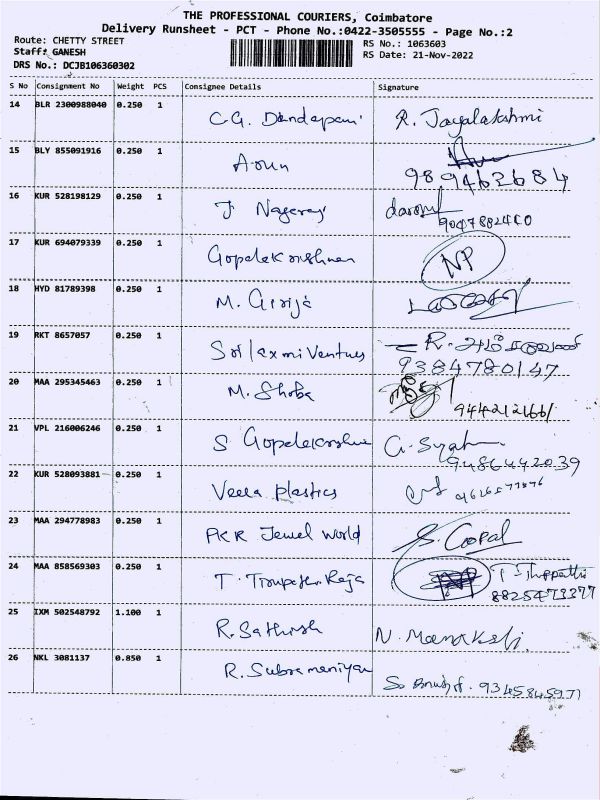 THE PROFESSIONAL COURIERS, Coimbatore
Delivery Runsheet - PCT - Phone No.:0422-3505555 - Page No.:2
Route: CHETTY STREET
RS No.: 1063603
Staff: GANESH
RS Date: 21-Nov-2022
DRS No.: DCJB106360302
S No Consignment No Weight PCS Consignee Details Signature
14 BLR 2300988040 0.250 1 C.G. Dandapani R. Jayalakshmi
15 BLY 855091916 0.250 1 Arun
9894636 84
16 KUR 528198129 0.250 1 J Nagaraj
17 KUR 694079339 0.250 1 Gopalakrishnan NP
18 HYD 81789398 0.250 1 M. Girija
19 RKT 8657057 0.250 1 Sri laxmi Ventures R.
9384780147
20 MAA 295345463 0.250 1 M. Shoba
21 VPL 216006246 0.250 1 S Gopalakrishna
9486442039
22 KUR 528093881 0.250 1 Veera plastics
23 MAA 294778983 0.250 1 PKR Jewel World S. Gopal
24 MAA 858569303 0.250 1 T. Raja NP
8825473377
25 IXM 502548792 1.100 1 R. Sathish
26 NKL 3081137 0.850 1 R. Subramaniyan 9345845971